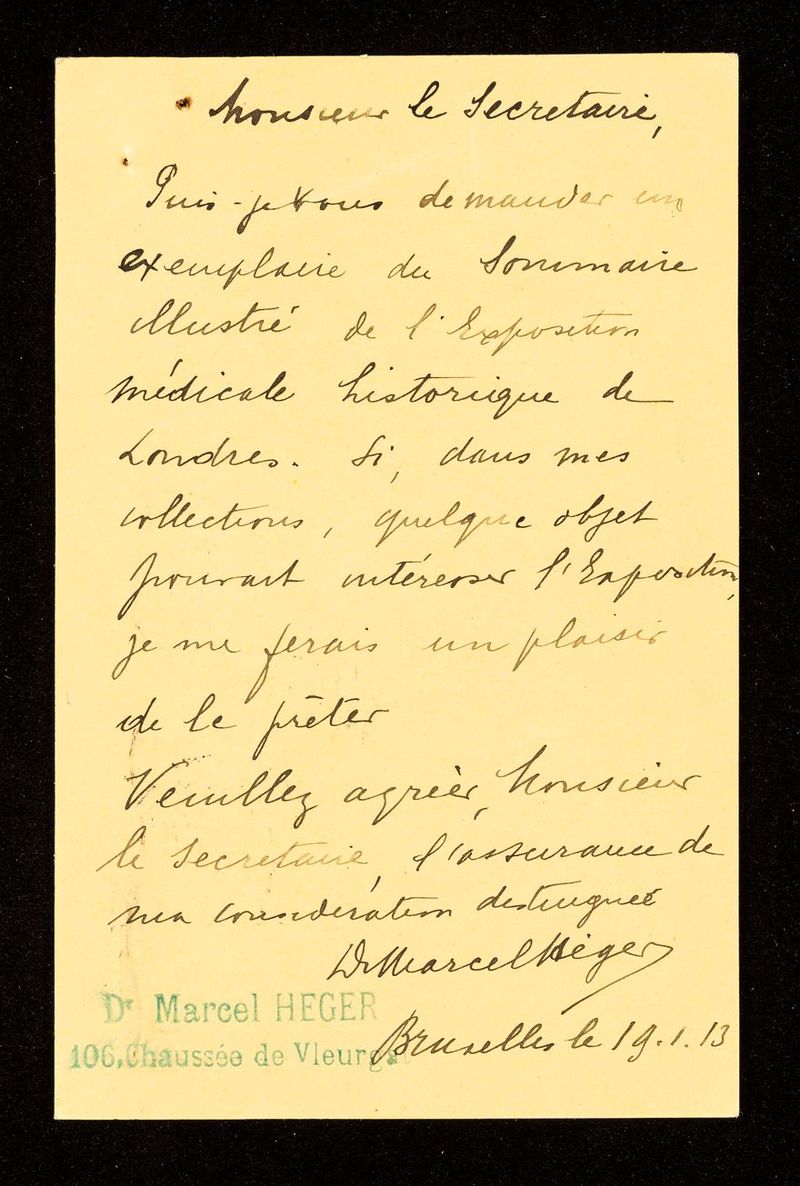 Monsieur le Secretaire,
Puis-je vous demander un
exemplaire du Sommaire
illustré de l'Exposition
médicale historique de
Londres. Si, dans mes
collections, quelque objet
pouvait intéresser l'Exposition,
je me ferais un plaisir
de le prêter
Veuillez agréer, Monsieur
le Secretaire, l'assurance de
ma considération distinguée
Dr Marcel Héger
Dr Marcel HEGER
106, Chaussée de Vleurg.
Bruxelles le 19.1.13